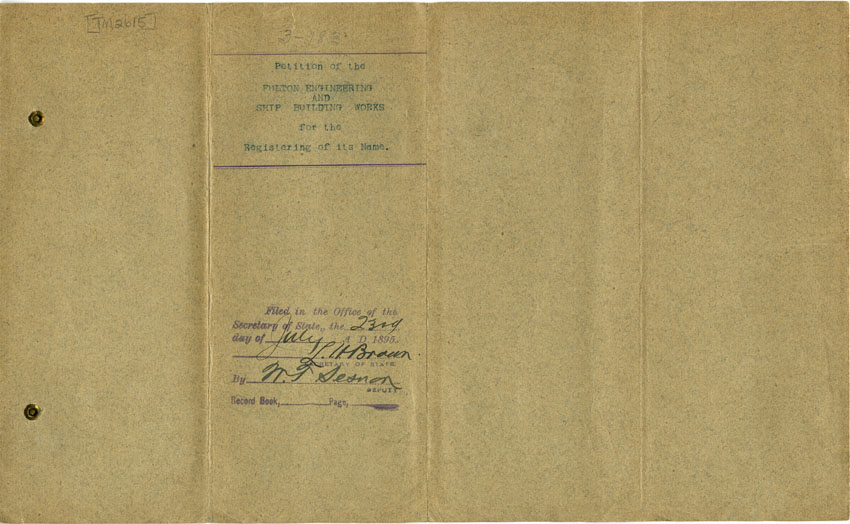 [TM2615]
Petition of the
FULTON ENGINEERING
AND
SHIP BUILDING WORKS
for the
Registering of its Name.
Filed in the Office of the
Secretary of State, the 23rd
day of July A D 1895.
L. H. Brown.
SECRETARY OF STATE
By W. T. Sesnon
DEPUTY
Record Book, Page,